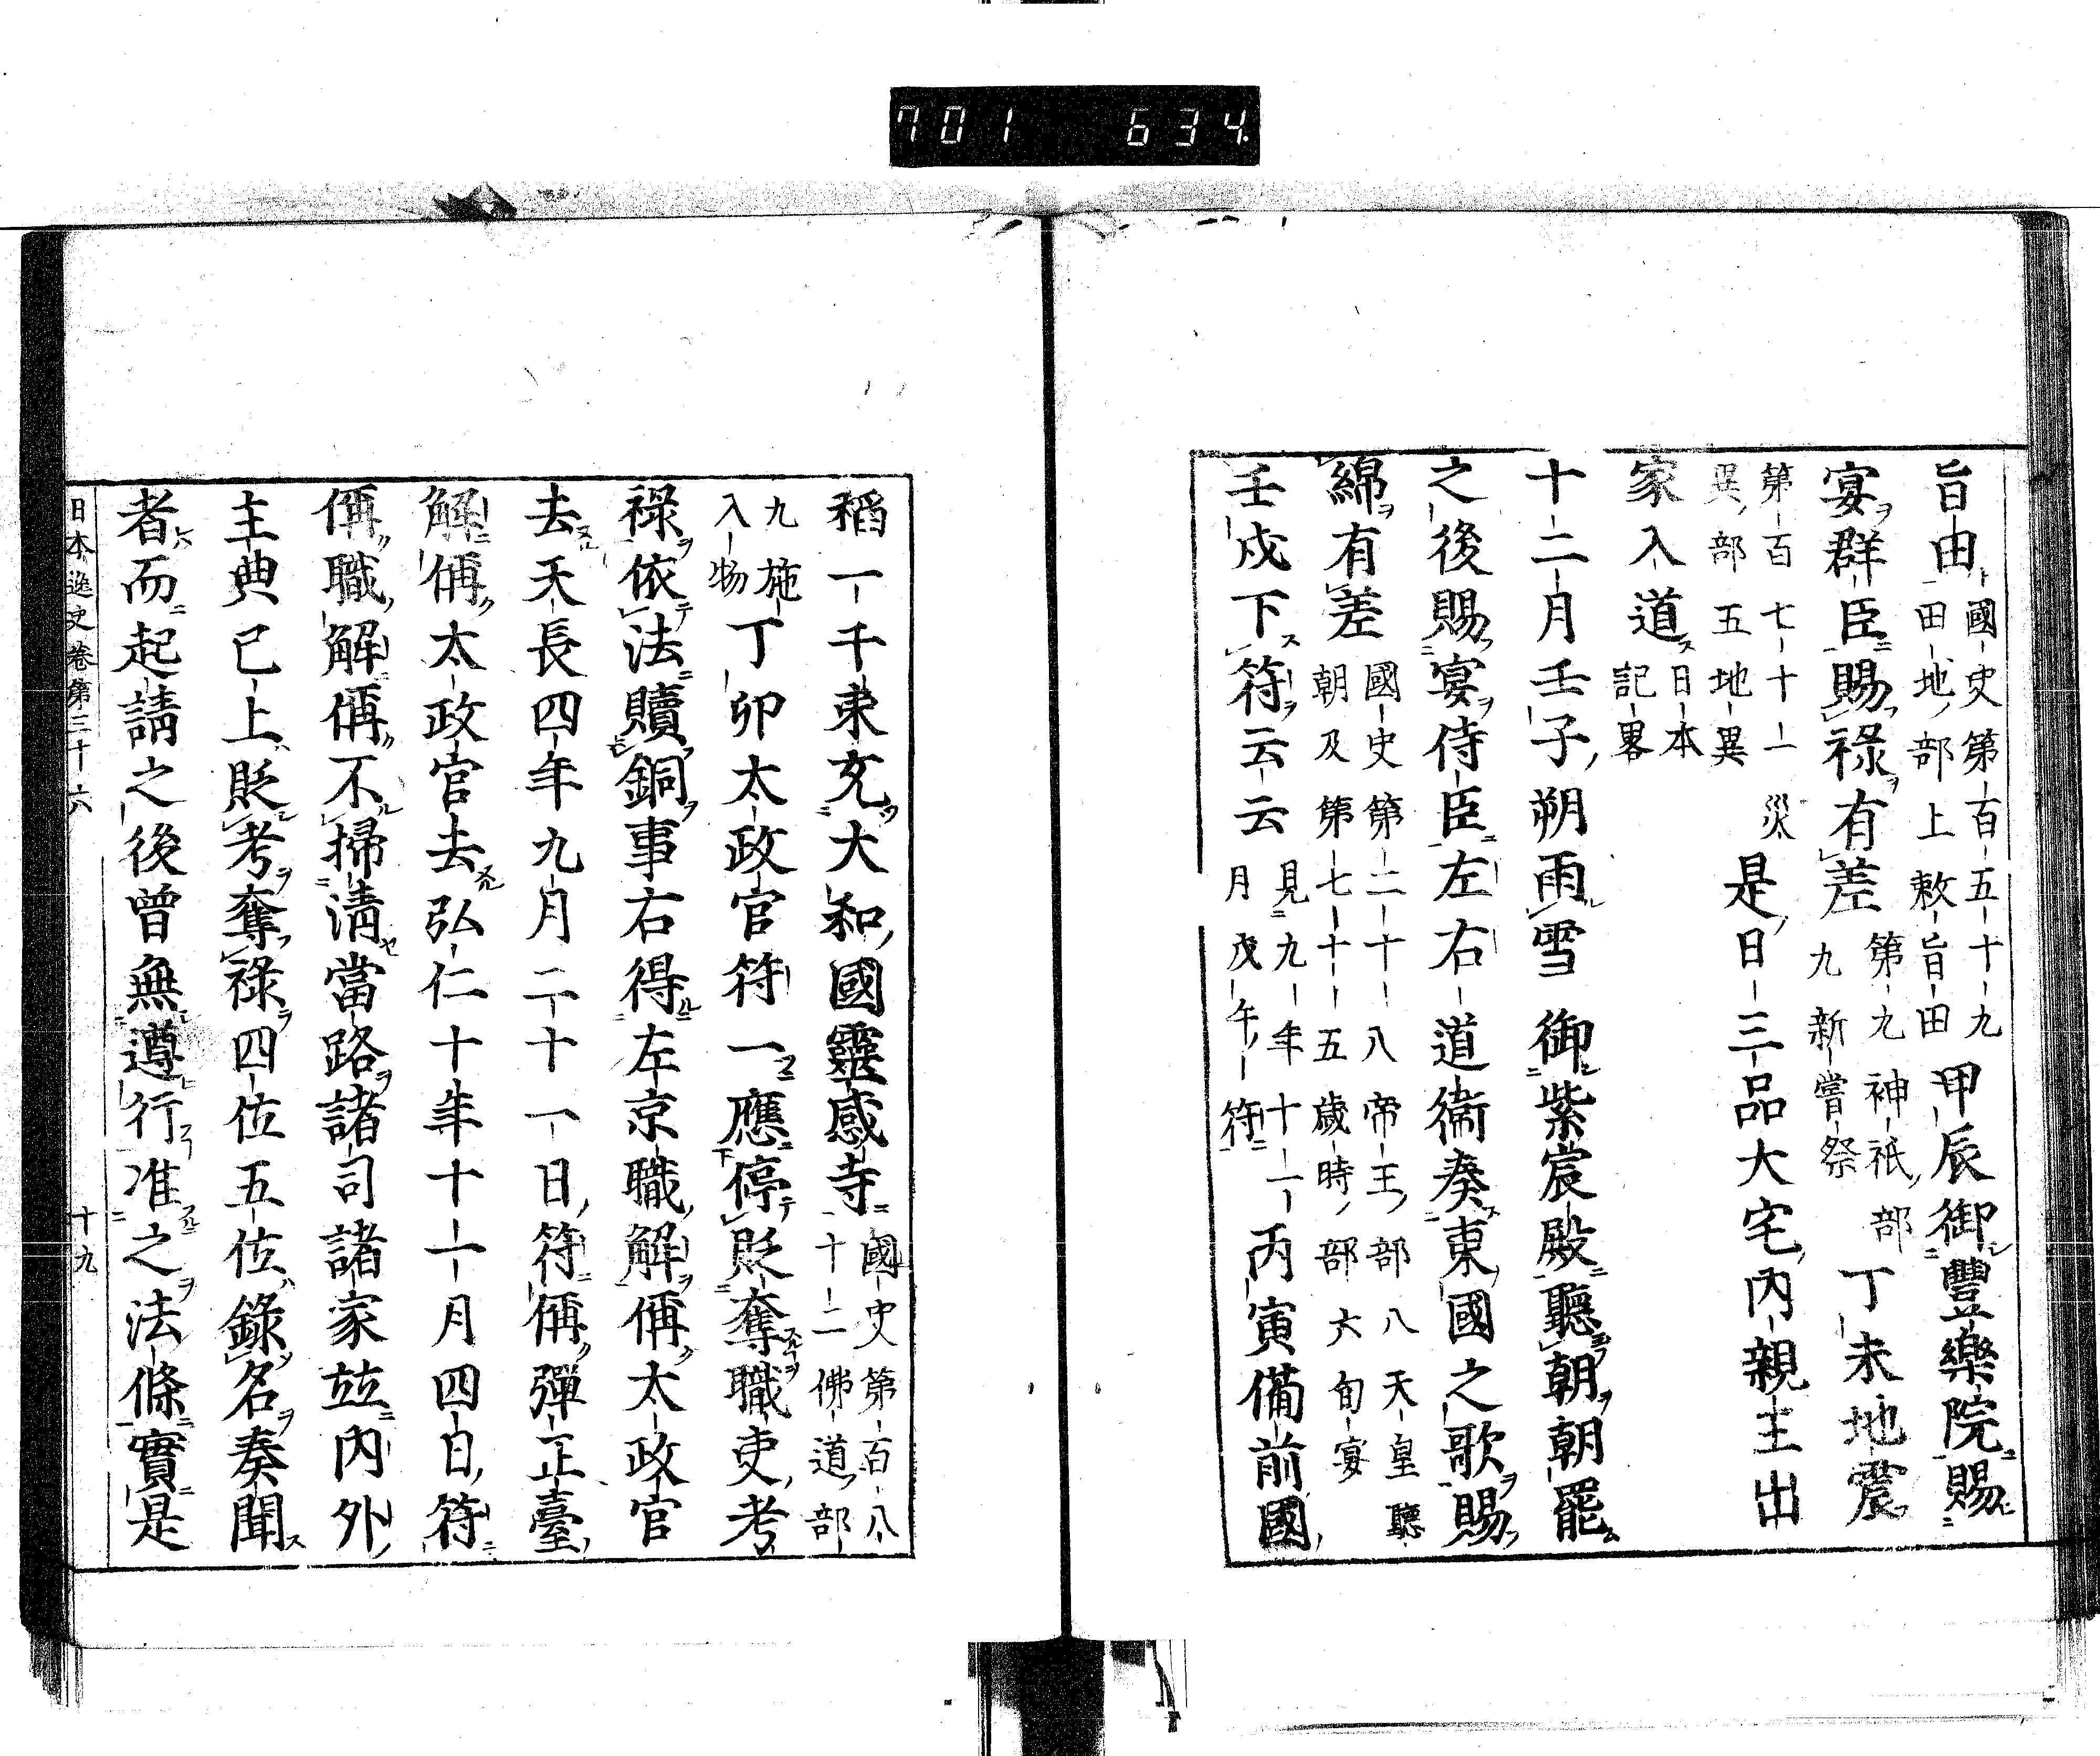 701 634
旨由國史第百五十九田地部上敕旨田甲辰御豐樂院賜
宴群臣賜祿有差第九神祇部九新嘗祭丁未地震
第百七十一災異部五地異是日三品大宅內親王出
家入道日本記畧
十二月壬子朔雨雪御紫宸殿聽朝朝罷
之後賜宴侍臣左右道衞奏東國之歌賜
綿有差國史第二十八帝王部八天皇聽朝及第七十五歲時部六旬宴
壬戌下符云云見九年十一月戊午符丙寅備前國
稻一千束充大和國靈感寺國史第百八十二佛道部
九施入物丁卯太政官符一應停貶奪職吏考
祿依法贖銅事右得左京職解偁太政官
去天長四年九月二十一日符偁彈正臺
解偁太政官去弘仁十年十一月四日符
偁職解偁不掃淸當路諸司諸家竝內外
主典已上貶考奪祿四位五位錄名奏聞
者而起請之後曾無遵行准之法條實是
日本逸史卷第三十六 十九